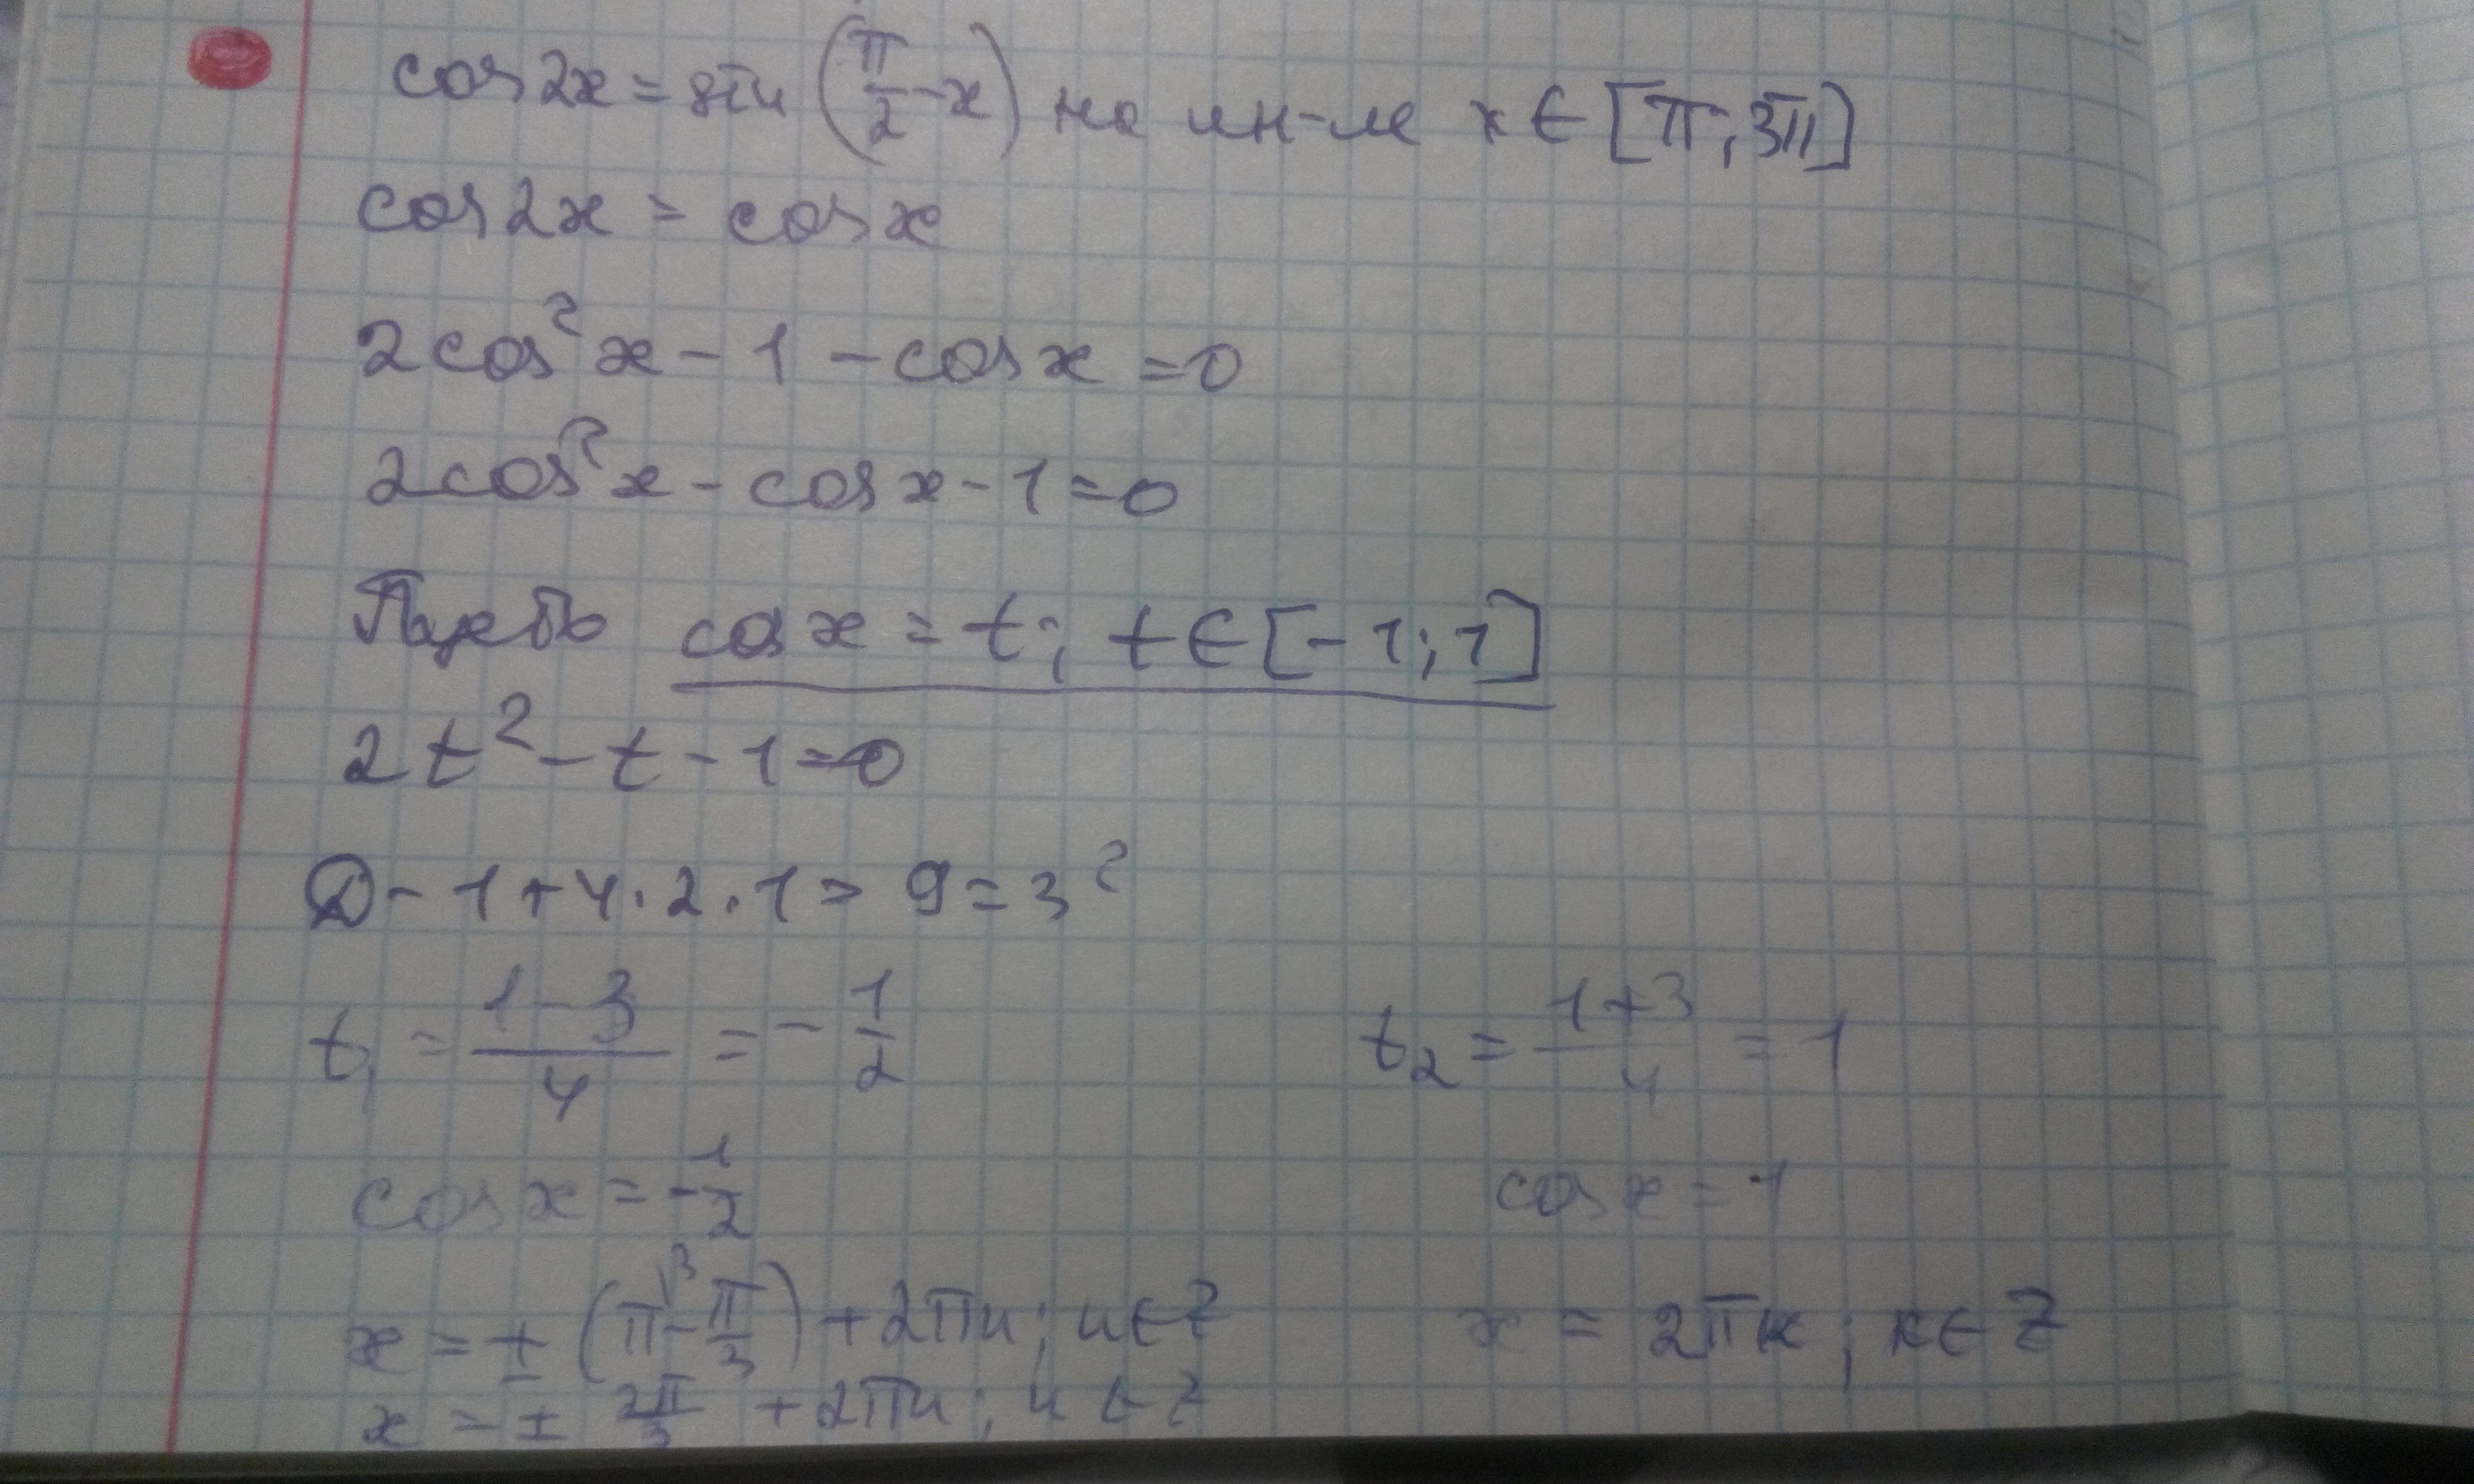 cos2x = sin(π/2 - x) на ин-ле x ∈ [π; 3π]
cos2x = cosx
2cos²x - 1 - cosx = 0
2cos²x - cosx - 1 = 0
Пусть cosx = t; t ∈ [-1; 1]
2t² - t - 1 = 0
D = 1 + 4·2·1 = 9 = 3²
t₁ = (1 - 3)/4 = -1/2 t₂ = (1 + 3)/4 = 1
cosx = -1/2 cosx = 1
x = ± (π - π/3) + 2πn; n ∈ Z x = 2πk; k ∈ Z
x = ± 2π/3 + 2πn; n ∈ Z